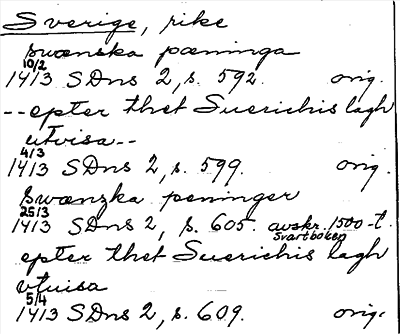 Sverige, rike
swænska pæninga
10/2
1413 SDns 2, s. 592. orig.
--epter thet Suerichis lagh
utvisa--
4/3
1413 SDns 2, s. 599. orig.
swænzka peninger
25/3
1413 SDns 2, s. 605. avskr. 1500-t.
Svartboken
epter thet Suerichis lagh
vtuisa
5/4
1413 SDns 2, s. 609. orig.